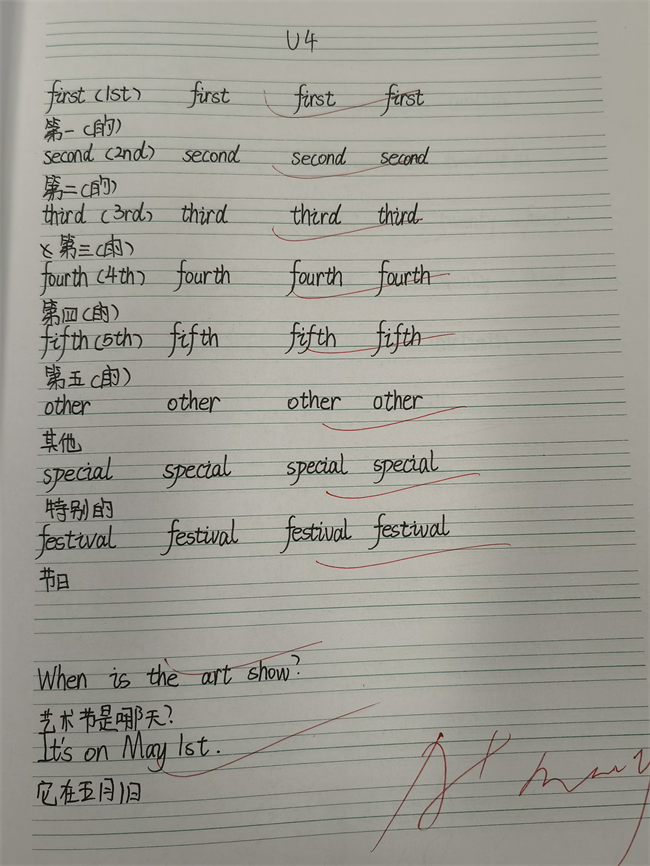 U4
first (1st) first first first
第一(的)
second (2nd) second second second
第二(的)
third (3rd) third third third
第三(的)
fourth (4th) fourth fourth fourth
第四(的)
fifth (5th) fifth fifth fifth
第五(的)
other other other other
其他
special special special special
特别的
festival festival festival festival
节日
When is the art show?
艺术节是哪天?
It's on May 1st.
它在五月1日
A+